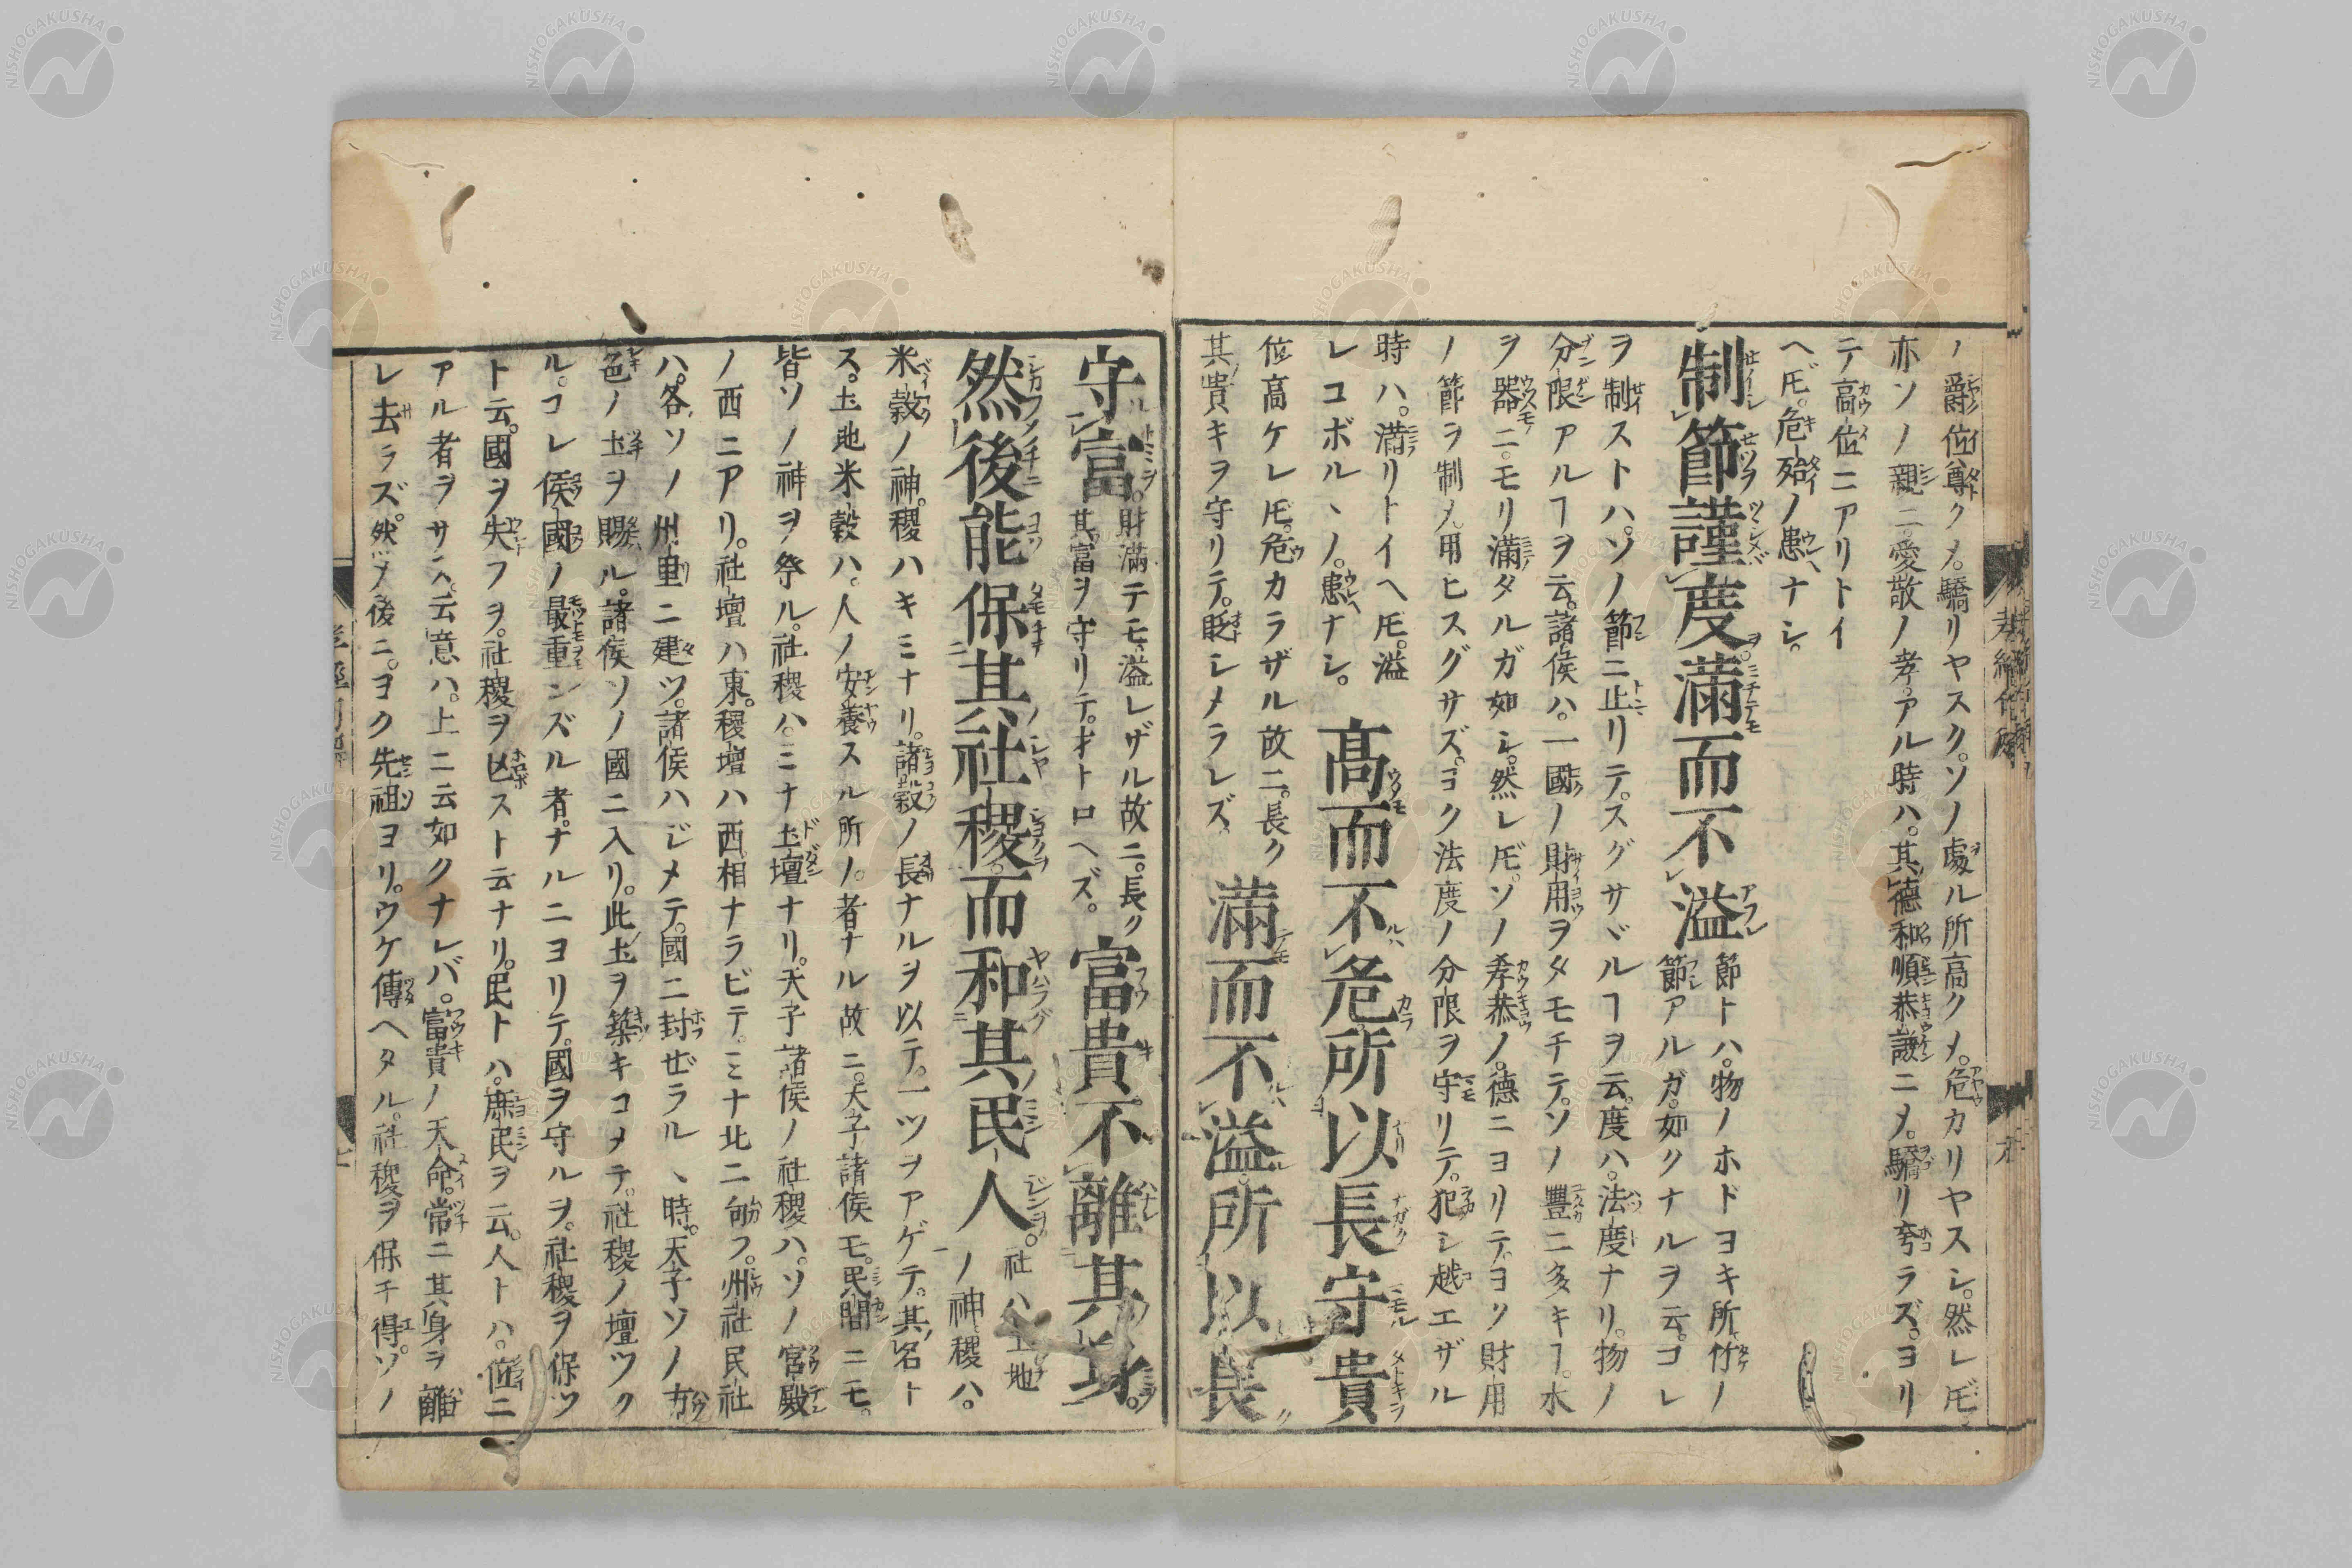 ノ爵位尊クメ。驕リヤスク。ソノ處ル所高クメ。危カリヤスシ。然レ𪜈。
亦ソノ親ニ愛敬ノ孝アル時ハ。其德和順恭謙ニメ。驕リ夸ラズ。ヨリ
テ高位ニアリトイ
ヘ𪜈。危殆ノ患ナシ。
制節謹度滿而不溢 節トハ。物ノホドヨキ所竹ノ
節アルガ。如クナルヲ云。コレ
ヲ制ストハ。ソノ節ニ止リテ。スグサヾルヿヲ云。度ハ。法度ナリ。物ノ
分限アルヿヲ云。諸侯ハ。一國ノ財用ヲタモチテ。ソノ豐ニ多キヿ。水
ヲ器ニ。モリ滿タルガ如シ。然レ𪜈。ソノ孝恭ノ。德ニヨリテ。ヨク財用
ノ節ヲ制メ。用ヒスグサズ。ヨク法度ノ分限ヲ守リテ。犯シ越エザル
時ハ。滿リトイヘ𪜈。溢
レコボルヽノ。患ナシ。 高而不危所以長守貴
位高ケレ𪜈。危カラザル故ニ。長ク
其貴キヲ守リテ。貶シメラレズ。 滿而不溢所以長
守富。 財滿テモ。溢レザル故ニ。長ク
其富ヲ守リテ。オトロヘズ。 富貴不離其身。
然後能保其社稷。而和其民人。 社ハ土地
ノ神稷ハ。
米穀ノ神。稷ハキミナリ。諸穀ノ長ナルヲ以テ。一ツヲアゲテ。其名ト
ス。土地米穀ハ。人ノ安養スル所ノ。者ナル故ニ。天子諸侯モ。民間ニモ。
皆ソノ神ヲ祭ル。社稷ハ。ミナ土壇ナリ。天子諸侯ノ社稷ハ。ソノ官殿
ノ西ニアリ。社壇ハ東。稷壇ハ西相ナラビテ。ミナ北ニ向フ。州社民社
ハ。各ソノ州里ニ建ツ。諸侯ハジメテ。國ニ封ゼラルヽ時。天子ソノ方
色ノ土ヲ賜ル。諸侯ソノ國ニ入リ。此土ヲ築キコメテ。社稷ノ壇ツク
ル。コレ侯國ノ最重ンズル者ナルニヨリテ。國ヲ守ルヲ。社稷ヲ保ツ
ト云。國ヲ失フヲ。社稷ヲ亡スト云ナリ。民トハ。庶民ヲ云。人トハ。位ニ
アル者ヲサス。云意ハ。上ニ云如クナレバ。富貴ノ天命。常ニ其身ヲ離
レ去ラズ。然メ後ニ。ヨク先祖ヨリ。ウケ傳ヘタル。社稷ヲ保チ得。ソノ